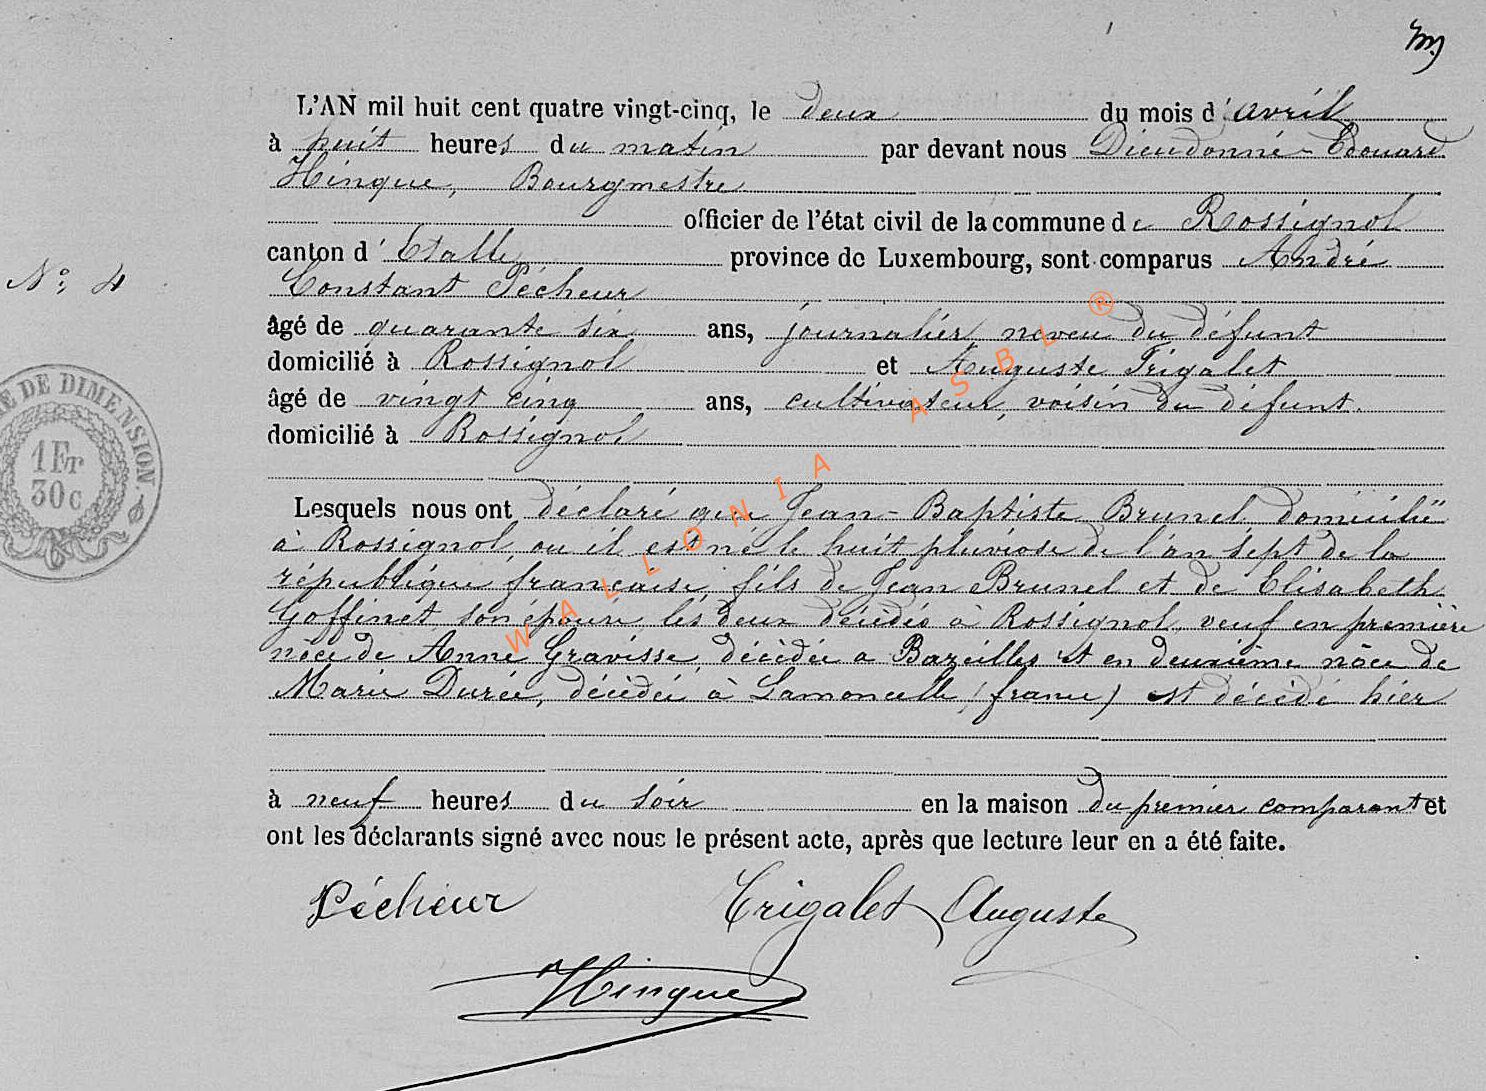 L'AN mil huit cent quatre vingt-cinq, le deux du mois d'avril
à huit heures du matin par devant nous Dieudonné-Edouard
Hinque, Bourgmestre
officier de l'état civil de la commune de Rossignol
canton d'Etalle province de Luxembourg, sont comparus André
Nº 4
Constant Pécheur
âgé de quarante six ans, journalier, neveu du défunt
domicilié à Rossignol et Auguste Trigalet
âgé de vingt cinq ans, cultivateur, voisin du défunt.
domicilié à Rossignol
RE DE DIMENSION.
1Fr
30c
Lesquels nous ont déclaré que Jean-Baptiste Brunel, domicilié
à Rossignol, ou il est né le huit pluviose de l'an sept de la
république française, fils de Jean Brunel et de Elisabeth
Goffinet son épouse les deux décédés à Rossignol, veuf en première
nôce de Anne Gravisse, décédée a Bazeilles et en deuxième nôce de
Marie Durée, décédée à Lamoncelle (france) est décédé hier
à neuf heures du soir en la maison du premier comparant et
ont les déclarants signé avec nous le présent acte, après que lecture leur en a été faite.
Pécheur Trigalet Auguste
Hinque
WALLONIA ASBL ®